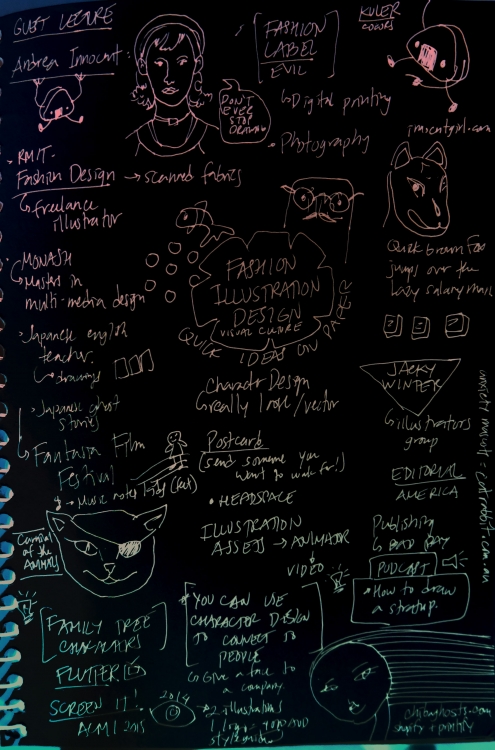 GUEST LECTURE
Andrea Innocent
RMIT
Fashion Design → scanned fabrics
freelance
illustrator
MONASH
Masters in
multi-media design
Japanese english
teacher
drawings
Japanese ghost
stories
Fantasia Film
Festival
Carnival
of the
ANIMALS
[FAMILY TREE
CHARACTERS]
FLUTTER
SCREEN IT!
ACMI 2015
DON'T
EVER
STOP
DRAWING
[FASHION
LABEL]
EVIL
Digital printing
Photography
FASHION
ILLUSTRATION
DESIGN
VISUAL CULTURE
QUICK IDEAS ON PAPER
Character Design
really love/vector
Postcard
(send someone you
want to work for!)
HEADSPACE
ILLUSTRATION
ASSETS → ANIMATOR
VIDEO
[YOU CAN USE
CHARACTER DESIGN
TO CONNECT TO
PEOPLE]
Give a face to
a company
2014
2 illustrations
KULER
COLORS
innocentgirl.com
Quick brown Fox
jumps over the
lazy salary man
JACKY
WINTER
illustrators
group
EDITORIAL
AMERICA
Publishing
BAD DAY
PODCAST
How to draw
a startup.
anxiety mascot = catrabbit.com.au